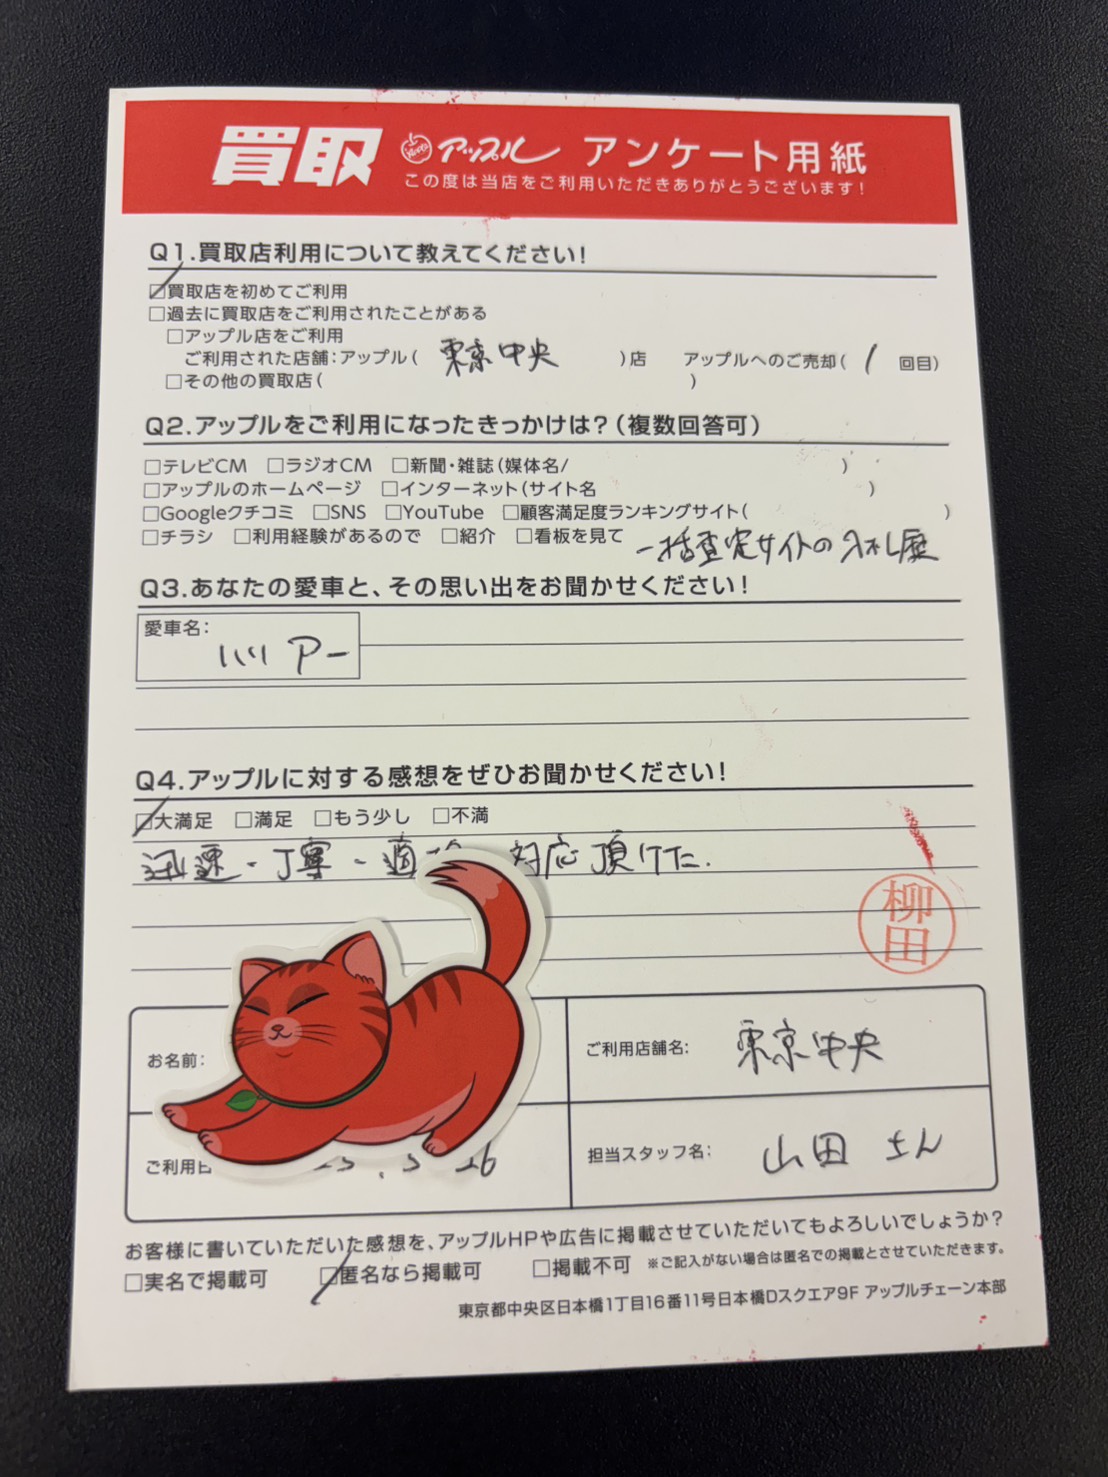 買取 アップル アンケート用紙
この度は当店をご利用いただきありがとうございます!
Q1.買取店利用について教えてください!
☑買取店を初めてご利用
□過去に買取店をご利用されたことがある
□アップル店をご利用
ご利用された店舗:アップル( 東京中央 )店 アップルへのご売却( 1 回目)
□その他の買取店( )
Q2.アップルをご利用になったきっかけは?(複数回答可)
□テレビCM □ラジオCM □新聞・雑誌(媒体名/ )
□アップルのホームページ □インターネット(サイト名 )
□Googleクチコミ □SNS □YouTube □顧客満足度ランキングサイト( )
□チラシ □利用経験があるので □紹介 □看板を見て 一括査定サイトの入札
Q3.あなたの愛車と、その思い出をお聞かせください!
愛車名:
ハリアー
Q4.アップルに対する感想をぜひお聞かせください!
☑大満足 □満足 □もう少し □不満
迅速・丁寧・適 対応頂けた.
柳田
お名前:
ご利用店舗名: 東京中央
ご利用日
担当スタッフ名: 山田さん
お客様に書いていただいた感想を、アップルHPや広告に掲載させていただいてもよろしいでしょうか?
□実名で掲載可 ☑匿名なら掲載可 □掲載不可 ※ご記入がない場合は匿名での掲載とさせていただきます。
東京都中央区日本橋1丁目16番11号日本橋Dスクエア9F アップルチェーン本部